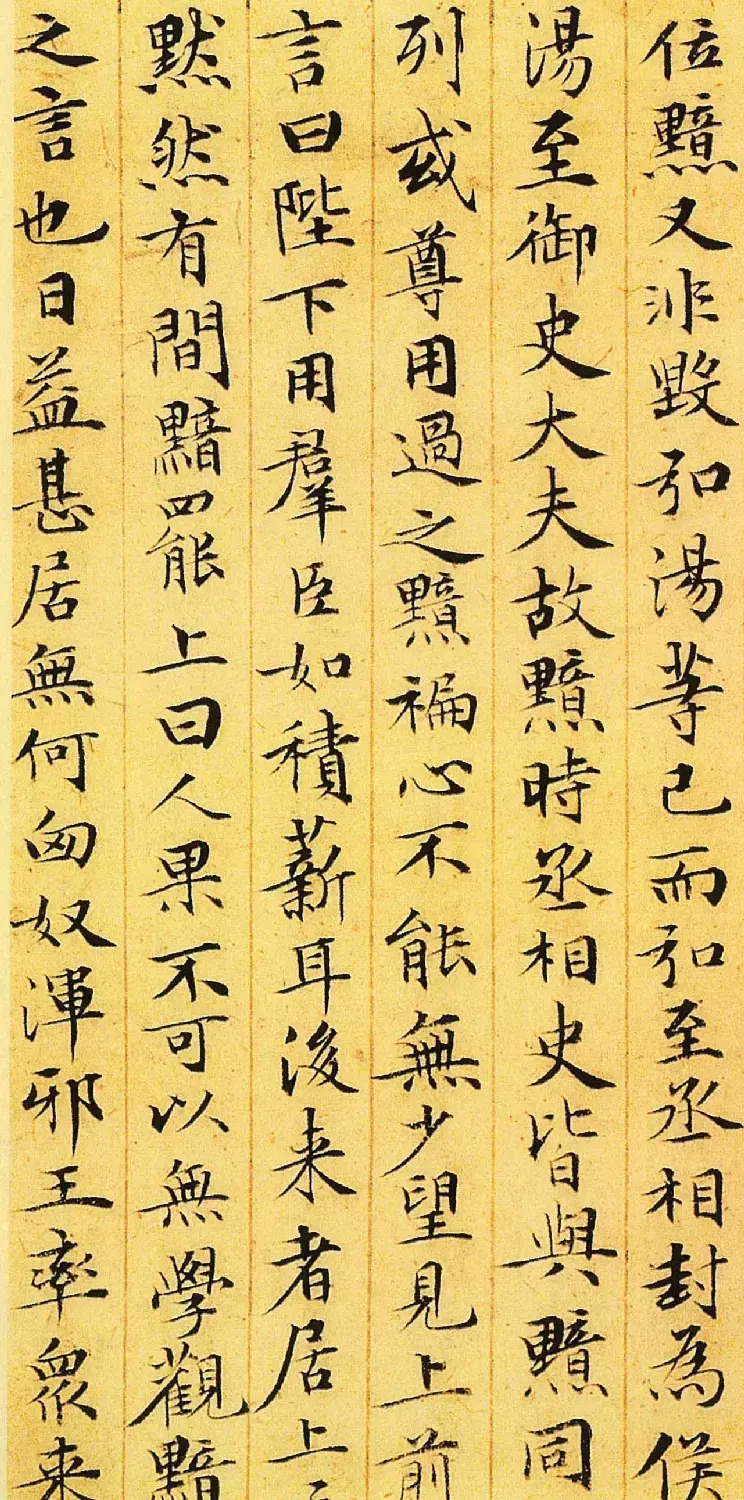 位黯又非毀弘湯等已而弘至丞相封為侯
湯至御史大夫故黯時丞相史皆與黯同
列或尊用過之黯褊心不能無少望見上前
言曰陛下用羣臣如積薪耳後来者居上
黙然有間黯罷上曰人果不可以無學觀黯
之言也日益甚居無何匈奴渾邪王率衆来